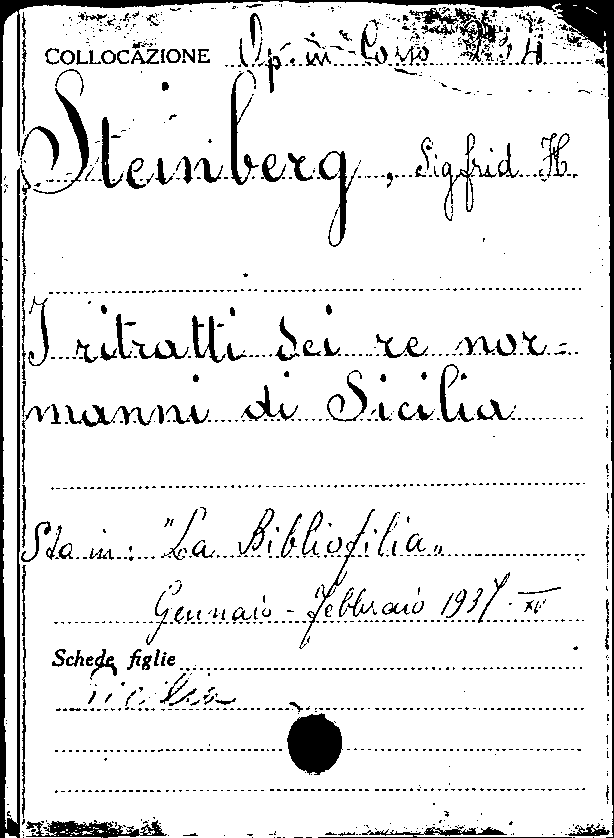 COLLOCAZIONE Op. in Cons 234
Steinberg, Sigfrid H.
I ritratti dei re nor=
manni di Sicilia
Sta in: "La Bibliofilia"
Gennaio - Febbraio 1937-XV
Schede figlie
Sicilia